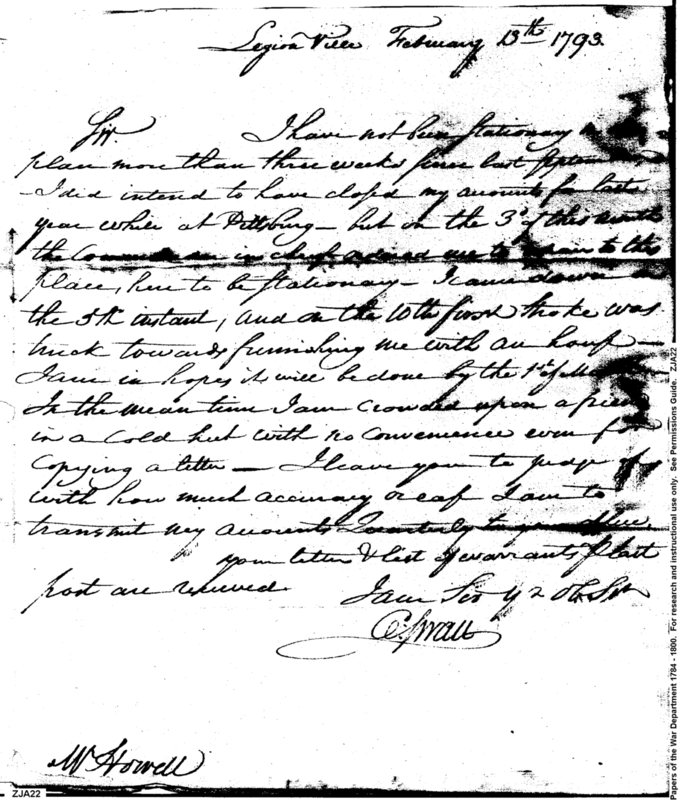 Legion Ville February 13th 1793.
Sir. I have not been stationary in any
place more than three weeks since last September
- I did intend to have closed my accounts for last
year while at Pittsburg - but on the 3d of this month
the Commander in chief ordered me to repair to this
place, here to be stationary - I came down on
the 5th instant, and on the 10th first stroke was
struck towards furnishing me with an house -
I am in hopes it will be done by the 1st of March
In the mean time I am Crowded upon a friend
in a Cold hut with no Convenience even for
Copying a letter - I leave you to judge
with how much accuracy or ease I am to
transmit my accounts Quarterly to your office.
your letter & list of warrants last
post are received.
I am Sir yr Ob Svt
C. Swan
Mr Howell
ZJA22
Papers of the War Department 1784 - 1800. For research and instructional use only. See Permissions Guide. ZJA22